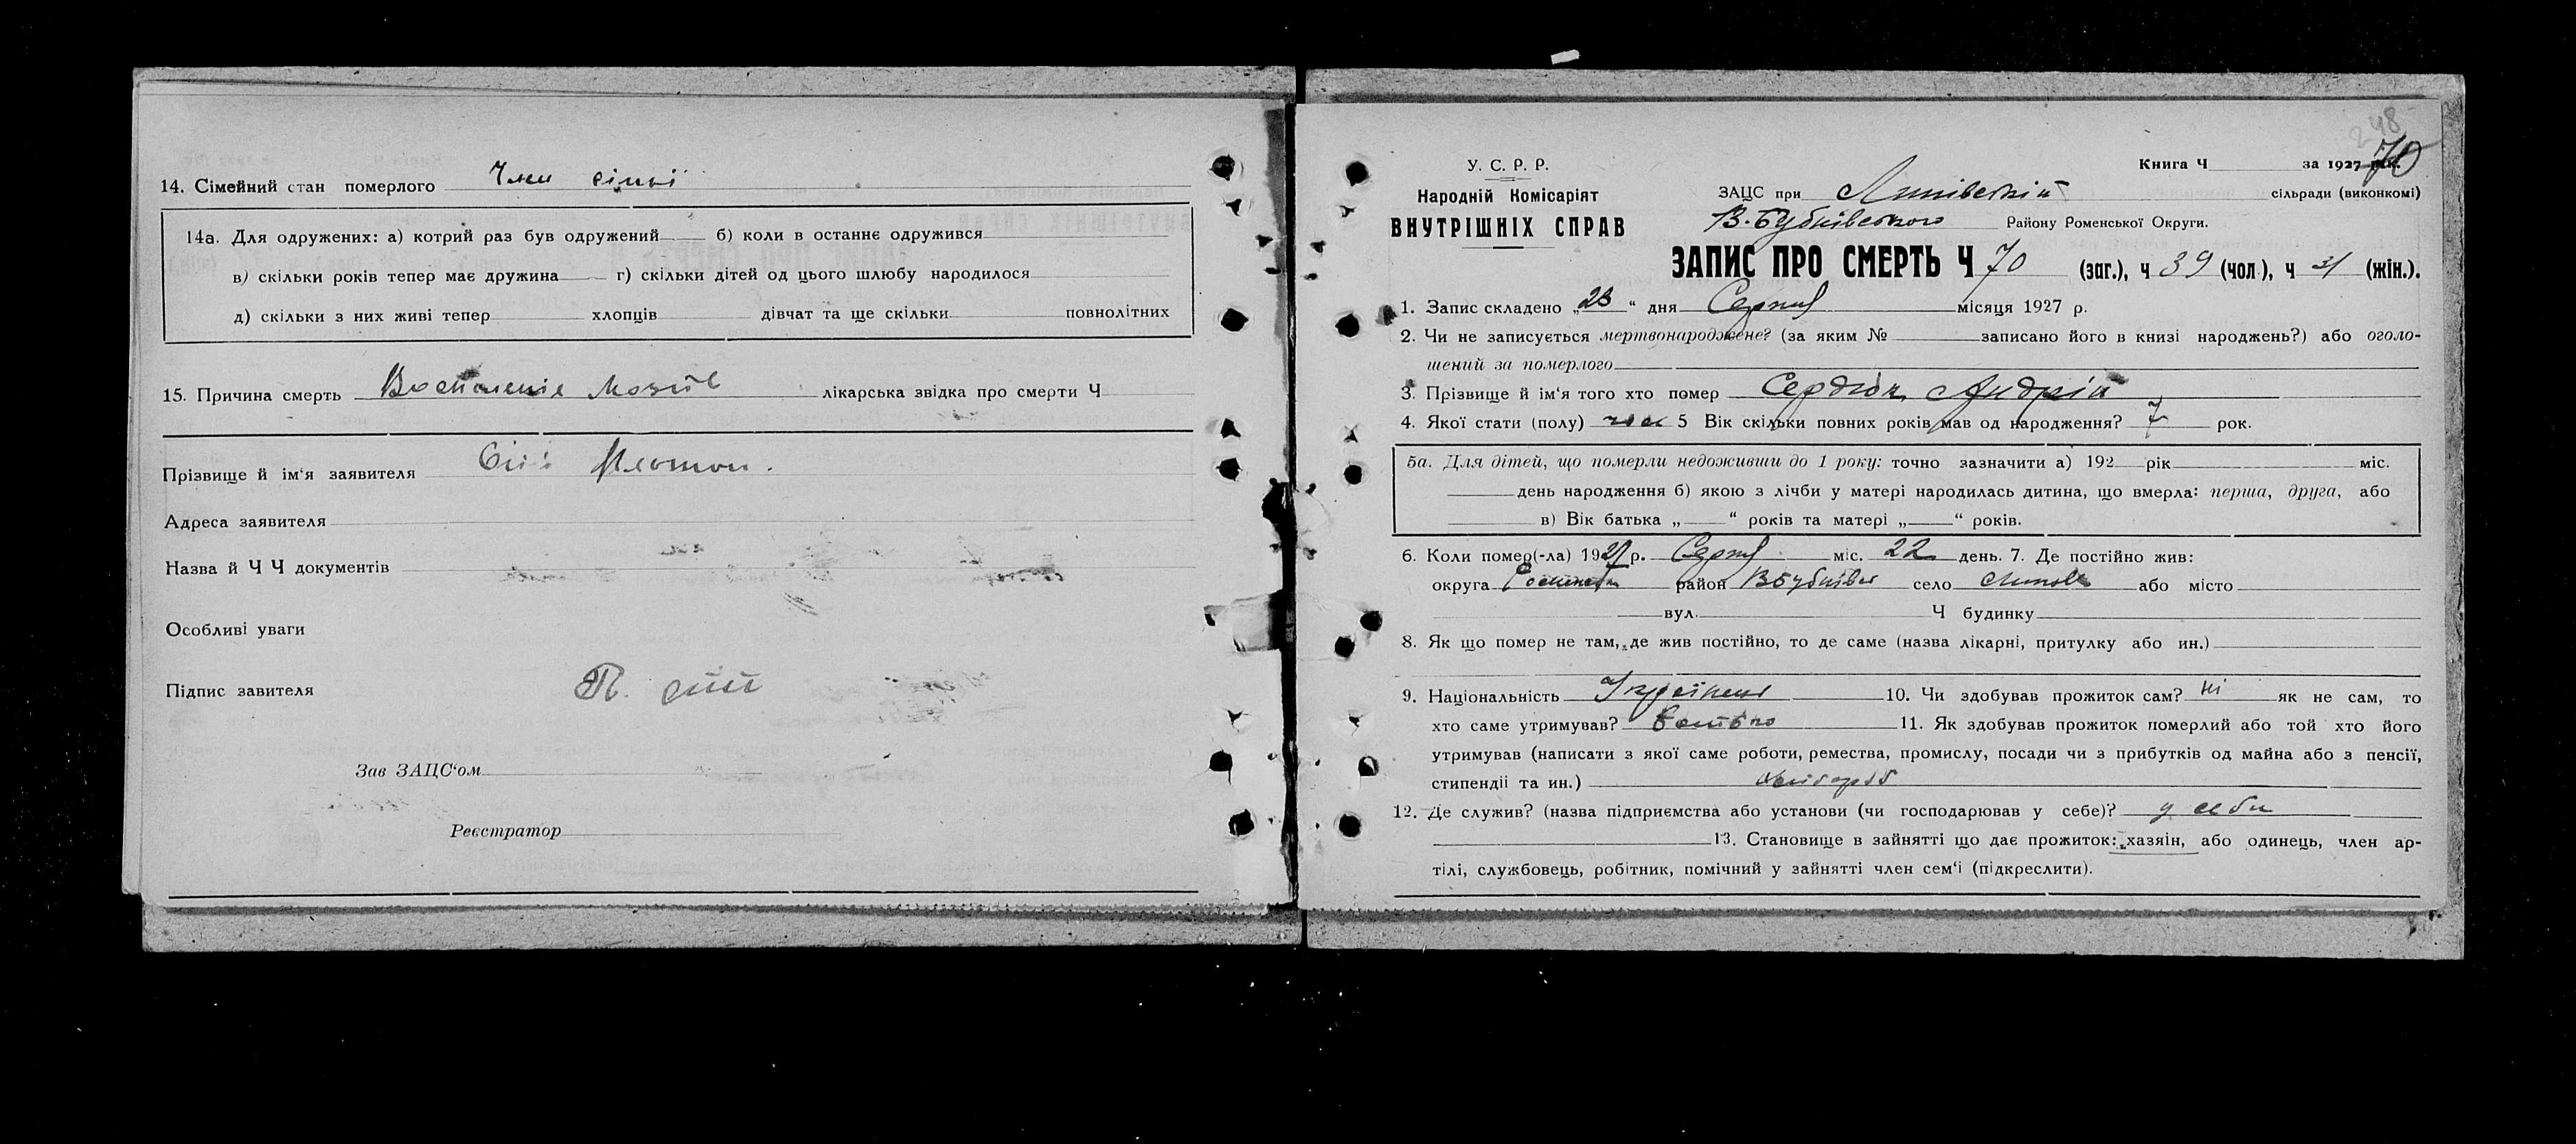 14. Сімейний стан померлого Член сімьї
14а. Для одружених: а) котрий раз був одружений б) коли в останнє одружився
в) скільки років тепер має дружина г) скільки дітей од цього шлюбу народилося
д) скільки з них живі тепер хлопців дівчат та ще скільки повнолітних
15. Причина смерть Воспаленіе мозгів лікарська звідка про смерти Ч
Прізвище й ім'я заявителя
Адреса заявителя
Назва й Ч Ч документів
Особливі уваги
Підпис завителя
Зав ЗАЦС'ом
Реєстратор
248
70
У. С. Р. Р.
Книга Ч за 1927 рік.
Народній Комісаріят
ЗАЦС при Липівській сільради (виконкомі)
ВНУТРІШНІХ СПРАВ
В-Бубнівського Району Роменської Округи.
ЗАПИС ПРО СМЕРТЬ Ч 70 (заг.), ч 39 (чол.), ч 31 (жін.).
1. Запис складено „23“ дня Серпня місяця 1927 р.
2. Чи не записується мертвонароджене? (за яким № записано його в книзі народжень?) або оголо-
шений за померлого
3. Прізвище й ім'я того хто помер Сердюк Андрій
4. Якої стати (полу) чол 5 Вік скільки повних років мав од народження? 7 рок.
5а. Для дітей, що померли недоживши до 1 року: точно зазначити а) 192 рік міс.
день народження б) якою з лічби у матері народилась дитина, що вмерла: перша, друга, або
в) Вік батька „ “ років та матері „ “ років.
6. Коли помер(-ла) 1927 р. Серпня міс. 22 день. 7. Де постійно жив:
округа Роменська район В Бубнівсь село Липове або місто
вул. Ч будинку
8. Як що помер не там, де жив постійно, то де саме (назва лікарні, притулку або ин.)
9. Національність Українець 10. Чи здобував прожиток сам? ні як не сам, то
хто саме утримував? батько 11. Як здобував прожиток померлий або той хто його
утримував (написати з якої саме роботи, ремества, промислу, посади чи з прибутків од майна або з пенсії,
стипендії та ин.) хлібороб
12. Де служив? (назва підприємства або установи (чи господарював у себе)? у себи
13. Становище в зайнятті що дає прожиток: хазяін, або одинець, член ар-
тілі, службовець, робітник, помічний у зайнятті член сем'ї (підкреслити).